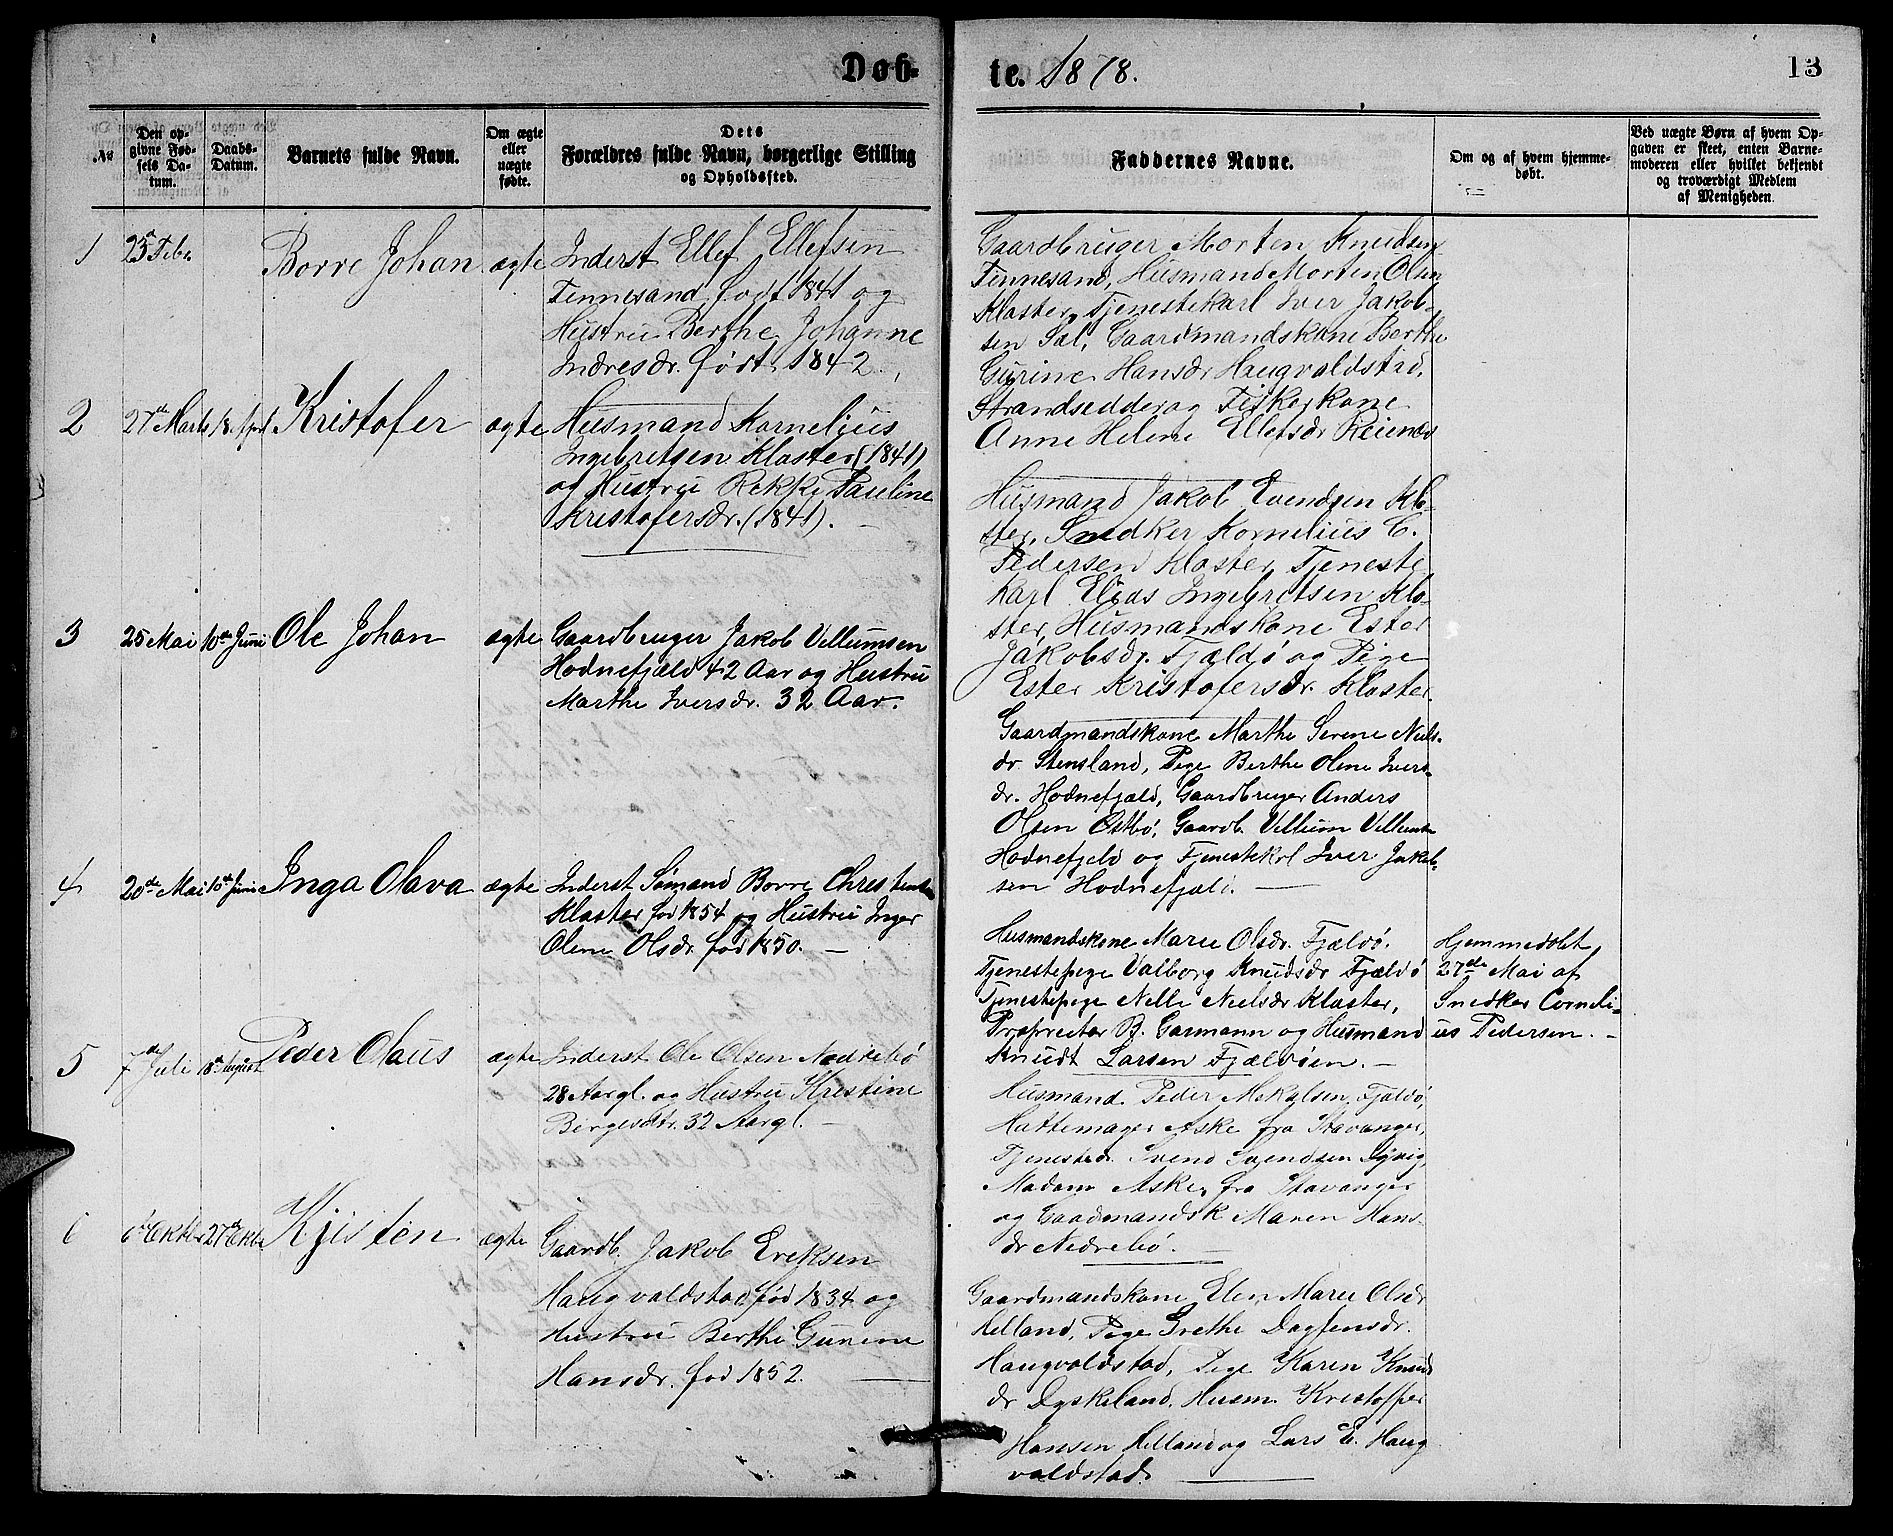 Døb-
te. 1878.
13
№
Den op-
givne Fød-
sels Da-
tum.
Daabs-
Datum.
Barnets fulde Navn.
Om ægte
eller
uægte
fødte.
Dets
Forældres fulde Navn, borgerlige Stilling
og Opholdssted.
Faddernes Navne.
Om og af hvem hjemme-
døbt.
Ved uægte Børn af hvem Op-
gaven er skeet, enten Barne-
moderen eller hvilket bekjendt
og troværdigt Medlem
af Menigheden.
1
23de Febr.
Borre Johan
ægte
Inderst Ellef Ellefsen
Finnesand, født 1841 og
Hustru Berthe Johanne
født 1842.
Gaardbruger Morten Knudsen
Finnesand, Husmand Morten Olsen
Kloster, Tjenestekarl Iver Jakob-
sen Sal, Gaardmandskone Berthe
Gurine Hansdr Haugvaldstad,
og Fiskerkone
Anne Helene Ellefsdr Reienes
2
27de Marts
18 April
Kristofer
ægte
Husmand Kornelius
Ingebretsen Kloster (1841)
og Hustru Rekke Pauline
Kristofersdr. (1841).
Husmand Jakob Evendsen Klo-
ster, Snedker Kornelius C.
Pedersen Kloster, Tjeneste
karl Elias Ingebretsen Klo-
ster, Husmandskone Ester
Jakobsdr. Fjældø og Pige
Ester Kristofersdr. Kloster.
3
25 Mai
10de Juni
Ole Johan
ægte
Gaardbruger Jakob Villumsen
Hodnefjæld 42 Aar og Hustru
Marthe Iversdr. 32 Aar.
Gaardmandskone Marthe Serene Niels-
dr. Stensland, Pige Berthe Olene Ivers-
dr. Hodnefjæld, Gaardbruger Anders
Olsen Østbø, Gaardb. Villum Villums-
Hodnefjeld og Tjenestekl Iver Jakob-
sen Hodnefjæld.
4
20de Mai
10de Juni
Inga Olava
ægte
Inderst Sømand Borre Christensen
Kloster fød 1854 og Hustru Inger
Olene Olsdr. fød 1850.
Husmandskone Marie Olsdr. Fjældø.
Tjenestepige Valborg Knudsdr Fjældø
Tjenestepige Nelle Nielsdr Kloster,
Proprietær B. Garmann og Husmand
Knudt Larsen Fjældøen.
Hjemmedøbt
27de Mai af
Snedker Corneli-
us Pedersen.
5
7de Juli
18de August
Peder Olaus
ægte
Inderst Ole Olsen Nedrebø
28 Aargl. og Hustru Kristine
Bergesdtr. 32 Aargl.
Husmand Peder Mikalsen Fjældø,
Hattemager Aske fra Stavanger,
Tjenestedr. Svend Svendsen Dysvig,
Madam Aske, fra Stavanger
og Gaadmandsk Maren Hans-
dr Nedrebø.
6
6te Oktbr
27de Oktbr
Kjisten
ægte
Gaardb. Jakob Eriksen
Haugvaldstad, fød 1834 og
Hustru Berthe Gurine
Hansdr. fød 1852.
Gaardmandskone Elen Marie Olsdr
Helland, Pige Grethe Dagfinsdr.
Haugvaldstad, Pige Karen Knuds
dr Dyskeland, Husm. Kristoffer
Hansen Helland og Lars E. Haug
valdstad.